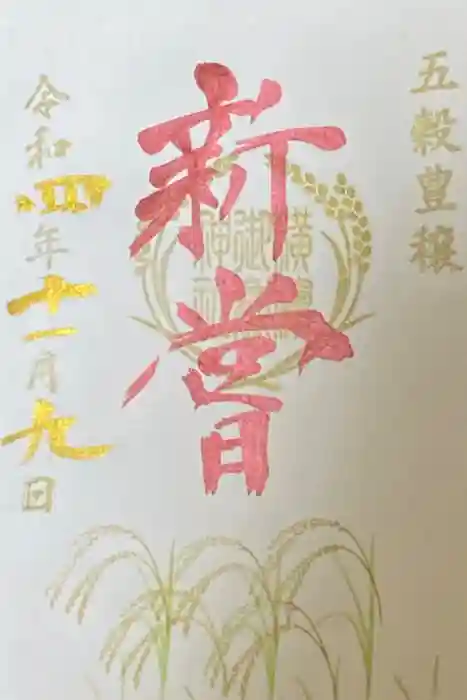 五穀豊穣
新嘗
令和四年十一月九日